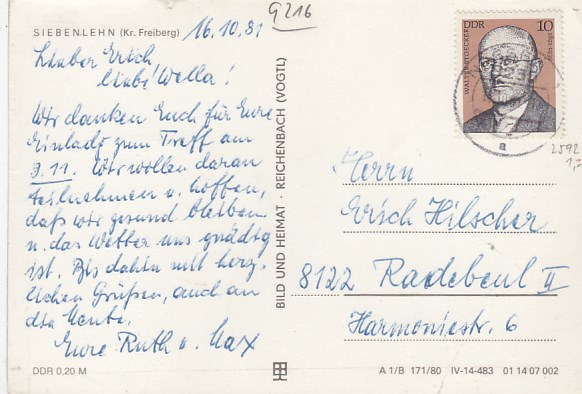 G 216
SIEBENLEHN (Kr. Freiberg)
16.10.81
Lieber Erich
liebe Wella!
Wir danken Euch für Eure
Einladg zum Treff am
3.11. Wir wollen daran
teilnehmen u. hoffen,
daß wir gesund bleiben
u. das Wetter uns gnädig
ist. Bis dahin mit herz-
lichen Grüßen, auch an
die Meute.
Eure Ruth u. Max
DDR 0,20 M
BILD UND HEIMAT · REICHENBACH (VOGTL)
DDR 10
WALTER STOECKER
1891-1939
a
2592
1,-
Herrn
Erich Hilscher
8122 Radebeul II
Harmoniestr. 6
A 1/B 171/80 IV-14-483 01 14 07 002